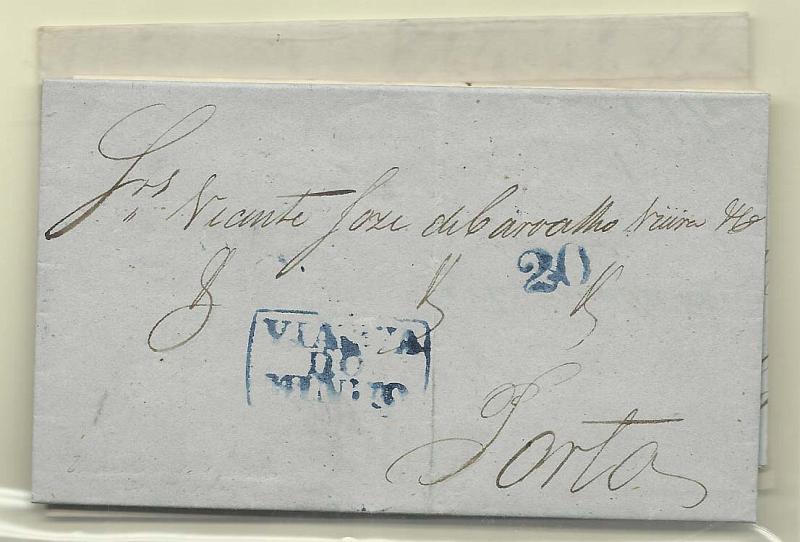 Snrs Vicente Joze de Carvalho Vieira &Co
20
VIANNA
DO
MINHO
Porto